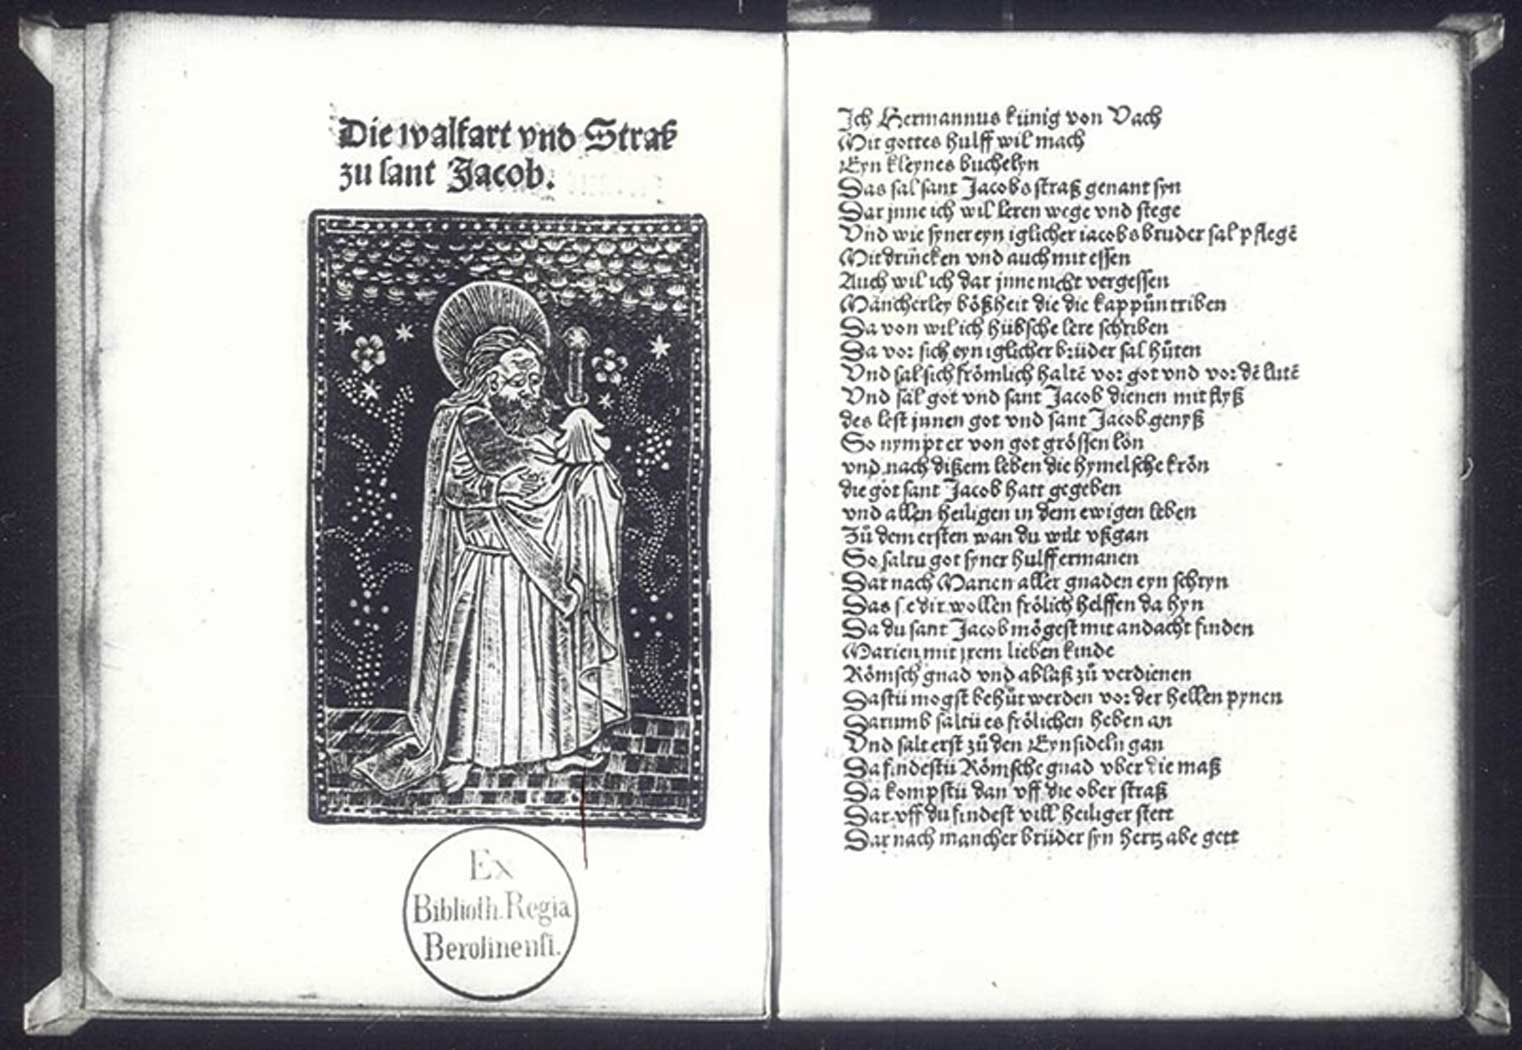 Die walfart vnd Straß
zu sant Jacob.
Ex
Biblioth. Regia
Berolinensi.
Ich Hermannus künig von Vach
Mit gottes hulff wil mach
Eyn kleynes buchelyn
Das sal sant Jacobs straß genant syn
Dar jnne ich wil leren wege vnd stege
Vnd wie syner eyn iglicher iacobs bruder sal pflegē
Mit drincken vnd auch mit essen
Auch wil ich dar jnne nicht vergessen
Mancherley bößheit die die kappün triben
Da von wil ich hübsche lere schriben
Da vor sich eyn iglicher brüder sal hüten
Vnd sal sich frömlich haltē vor got vnd vor dē lutē
Vnd sal got vnd sant Jacob dienen mit flyß
des lest jnnen got vnd sant Jacob genyß
So nympt er von got grössen lön
vnd nach dißem leben die hymelsche krön
die got sant Jacob hatt gegeben
vnd allen heiligen in dem ewigen leben
Zů dem ersten wan du wilt vßgan
So saltu got syner hulff ermanen
Dar nach Marien aller gnaden eyn schryn
Das se dir wollen frölich helffen da hyn
Da du sant Jacob mögest mit andacht finden
Marien mit jrem lieben kinde
Römsch gnad vnd ablaß zů verdienen
Dastu mogst behüt werden vor der hellen pynen
Darumb saltu es frölichen heben an
Vnd salt erst zů den Eynsideln gan
Da findestu Römsche gnad vber die maß
Da kompstu dan vff die ober straß
Dar vff du findest vill heiliger stett
Dar nach mancher brüder syn hertz abe gett